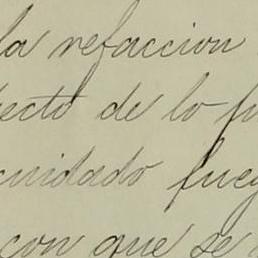 la refaccion
ecto de lo
cuidado fueg
con que se